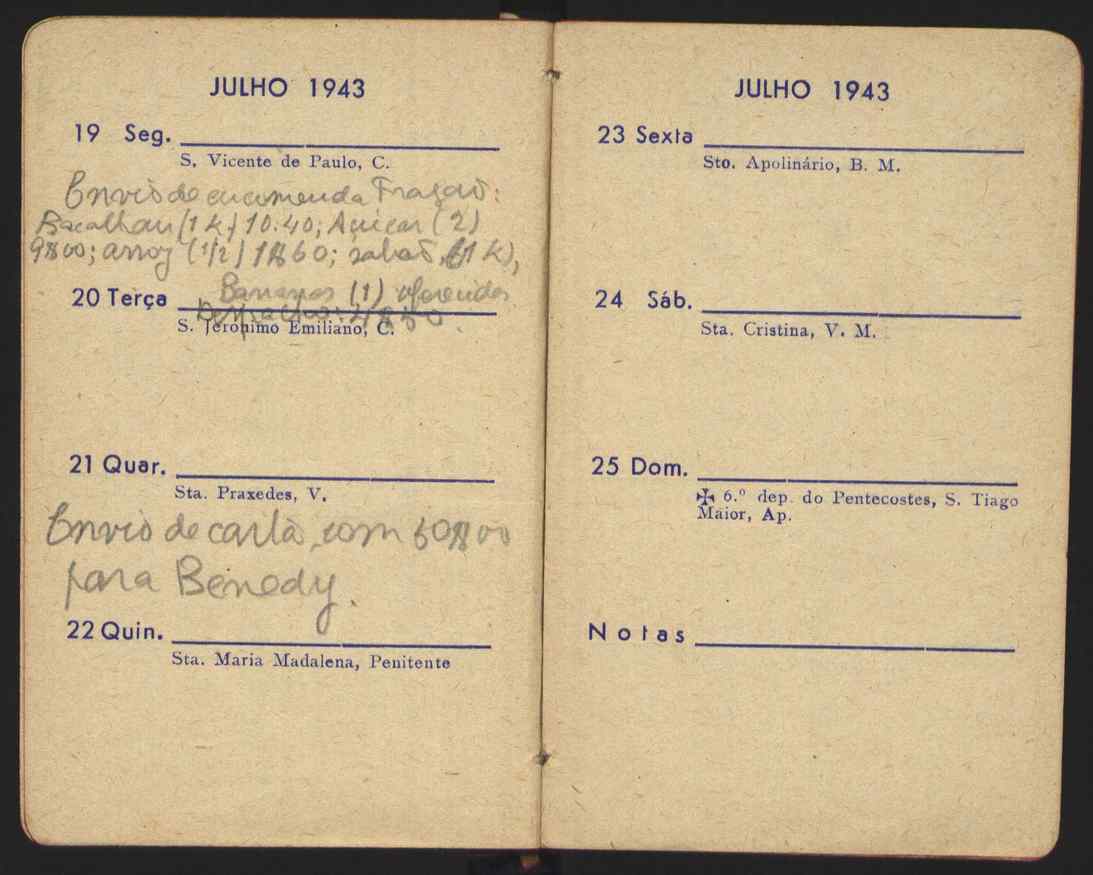 JULHO 1943
19 Seg.
S. Vicente de Paulo, C.
Envio de encomenda Fragão:
Bacalhau (1 k) 10.40; Açúcar (2)
9$00; arroz (1/2) 1$60; sabão (1 k),
20 Terça Bananas (1) oferecidas
Despacho: 4$50.
S. Jerónimo Emiliano, C.
21 Quar.
Sta. Praxedes, V.
Envio de carta com 50$00
para Benedy.
22 Quin.
Sta. Maria Madalena, Penitente
JULHO 1943
23 Sexta
Sto. Apolinário, B. M.
24 Sáb.
Sta. Cristina, V. M.
25 Dom.
✠ 6.º dep. do Pentecostes, S. Tiago
Maior, Ap.
Notas